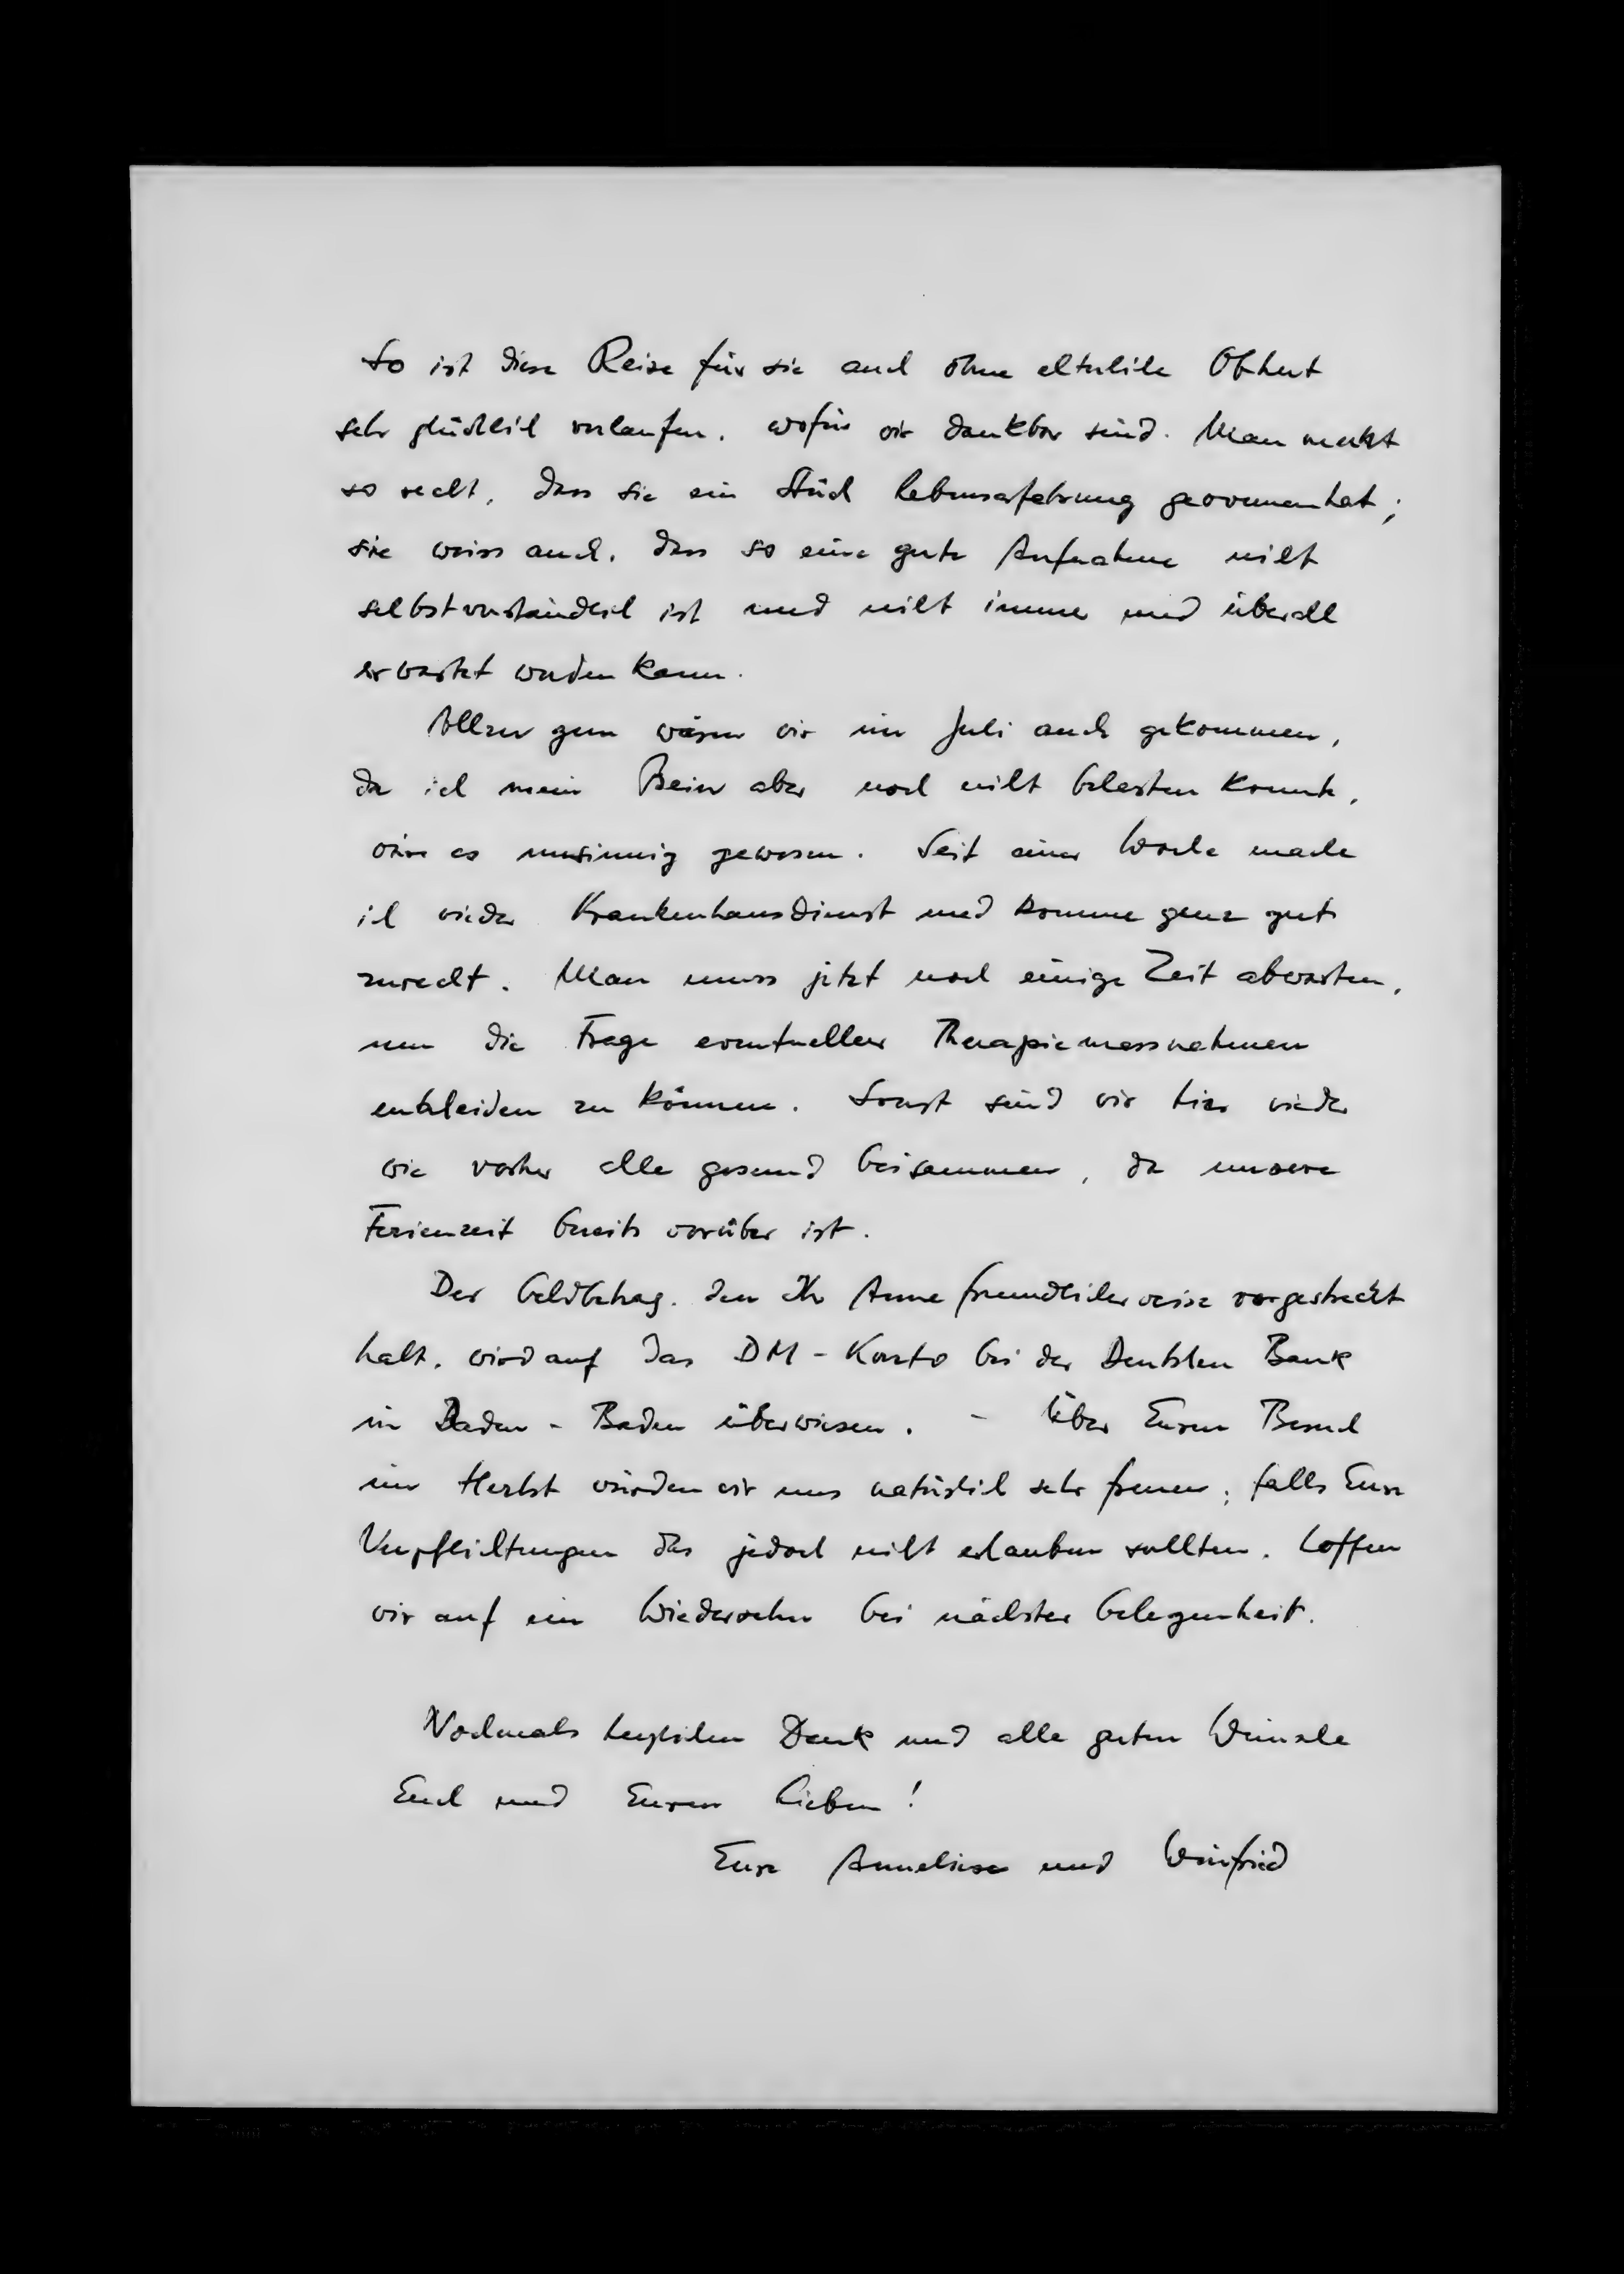 So ist diese Reise für sie auch ohne elterliche Obhut
sehr glücklich verlaufen, wofür wir dankbar sind. Man merkt
so recht, dass sie ein Stück Lebenserfahrung gewonnen hat;
sie weiss auch, dass so eine gute Aufnahme nicht
selbstverständlich ist und nicht immer und überall
erwartet werden kann.
Allzu gern wären wir im Juli auch gekommen,
da ich mein Bein aber noch nicht belasten konnte,
wäre es unsinnig gewesen. Seit einer Woche mache
ich wieder Krankenhausdienst und komme ganz gut
zurecht. Man muss jetzt noch einige Zeit abwarten,
um die Frage eventueller Therapiemassnahmen
entscheiden zu können. Sonst sind wir hier wieder
wie vorher alle gesund beisammen, da unsere
Ferienzeit bereits vorüber ist.
Der Geldbetrag, den Ihr Anne freundlicherweise vorgestreckt
habt, wird auf das DM-Konto bei der Deutschen Bank
in Baden-Baden überwiesen. - Über Euren Besuch
im Herbst würden wir uns natürlich sehr freuen; falls Eure
Verpflichtungen das jedoch nicht erlauben sollten, hoffen
wir auf ein Wiedersehn bei nächster Gelegenheit.
Nochmals herzlichen Dank und alle guten Wünsche
Euch und Euren Lieben!
Eure Anneliese und Winfried